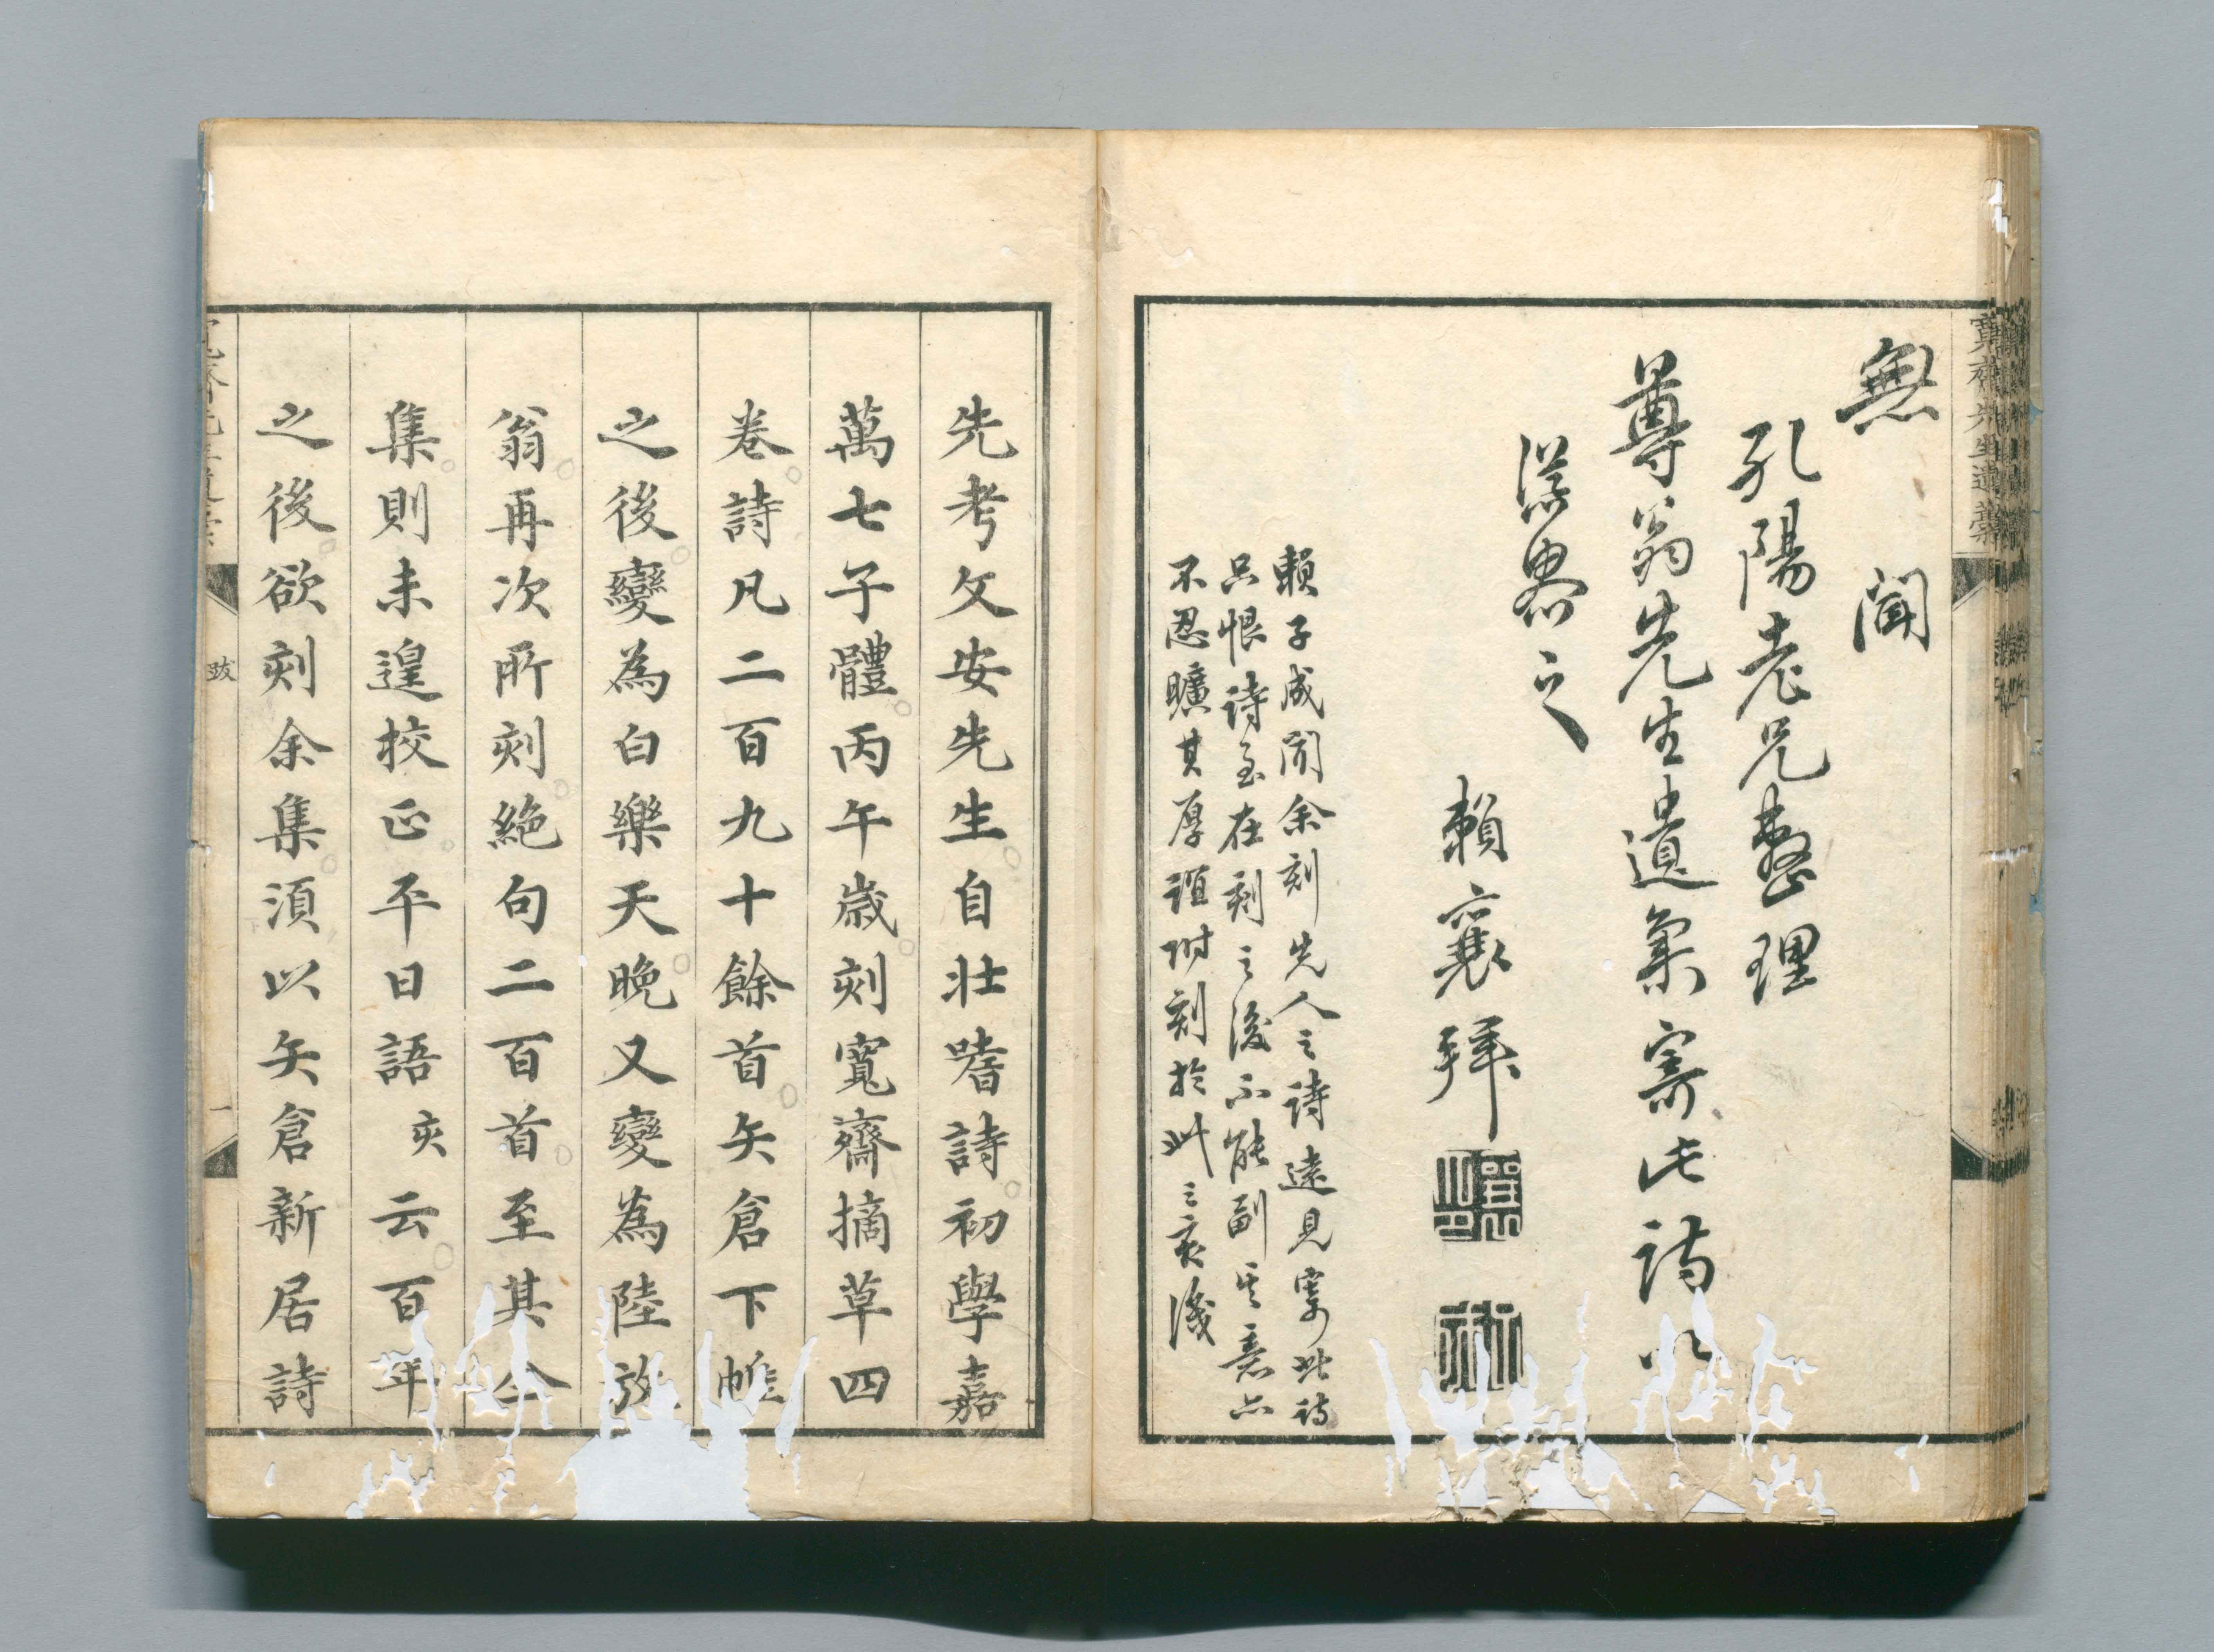 寬齋先生遺稾
無聞
孔陽老兄整理
尊翁先生遺稾寄此詩以
添恩之
賴襄拜
賴子成聞余刻先人之詩遠見寄此詩
只恨詩至在刻之後不能副其意亦
不忍曠其厚誼附刻於此三亥識
先考文安先生自壯嗜詩初學嘉
萬七子體丙午歲刻寬齋摘草四
卷詩凡二百九十餘首矢倉下帷
之後變為白樂天晩又變為陸放
翁再次所刻絶句二百首至其全
集則未遑挍正平日語亥云百年
之後欲刻余集須以矢倉新居詩
跋
一